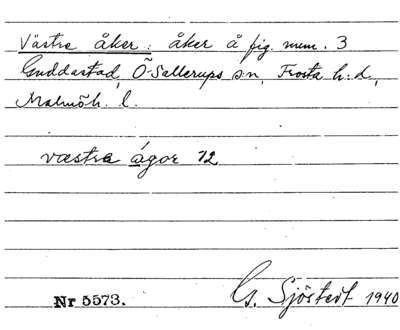 Västra åker: åker å fig. num. 3
Guddastad, Ö-Sallerups sn, Frosta h:d,
Malmöh. l.
væstra ágor 12
Nr 5573.
G. Sjöstedt 1940